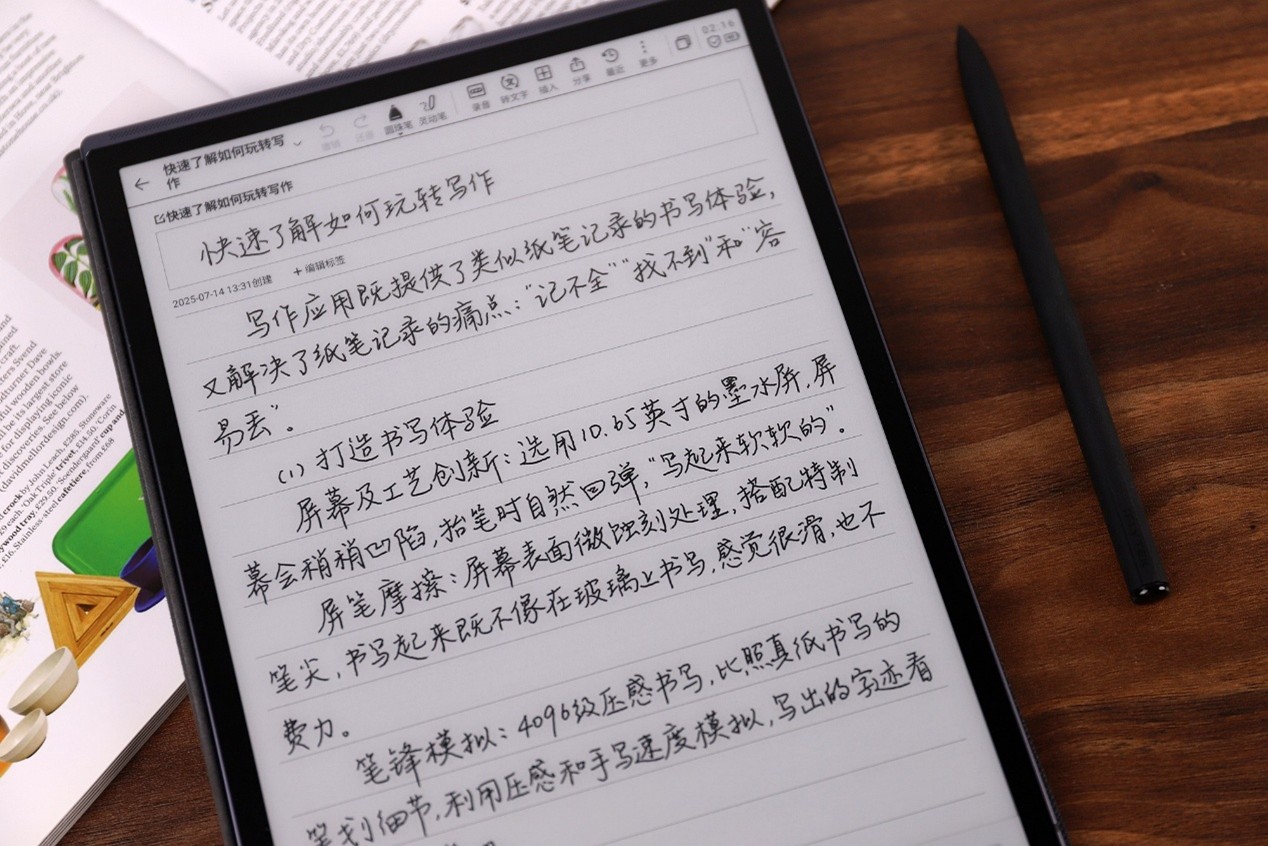 02:16
快速了解如何玩转写
作
圆珠笔
灵动笔
录音
转文字
插入
分享
最近
更多
快速了解如何玩转写作
快速了解如何玩转写作
2025-07-14 13:31创建
+ 编辑标签
写作应用既提供了类似纸笔记录的书写体验，
又解决了纸笔记录的痛点：“记不全”“找不到”和“容
易丢”。
(1) 打造书写体验
屏幕及工艺创新：选用10.65英寸的墨水屏，屏
幕会稍稍凹陷，抬笔时自然回弹，“写起来软软的”。
屏笔摩擦：屏幕表面微蚀刻处理，搭配特制
笔尖，书写起来既不像在玻璃上书写，感觉很滑，也不
费力。
笔锋模拟：4096级压感书写，比照真纸书写的
笔划细节，利用压感和手写速度模拟，写出的字迹看
craft.
ters Svend
odturner Dave
ful wooden bowls.
will be its largest store
for displaying iconic
t discoveries. See below
(davidmellordesign.com).
crock by John Leach, £285. Stoneware
9 each. 'Oak Triple' trivet, £14.50. 'Coria
wood tray, £29.50. 'Sondergaard' cup and
, £16. Stainless-steel cafetière, from £68